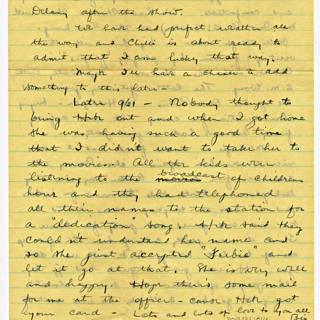 Delaney after the show.
We have had perfect weather all
the way and Chellie is about ready to
admit that I am lucky that way.
Maybe I'll have a chance to add
something to this later -
Later 961 - Nobody thought to
bring Hbk out and when I got home
she was having such a good time
that I didn't want to take her to
the movies. All the kids were
listening to the movies broadcast of childrens
hour and they had telephoned
all their names to the station for
a "dedication" song. Hbk said they
couldn't understand her name and
so she just accepted "Feebie" and
let it go at that. She is very well
and happy. Hope there's some mail
for me at the office - cause Hbk got
your card - Lots and lots of love to you all